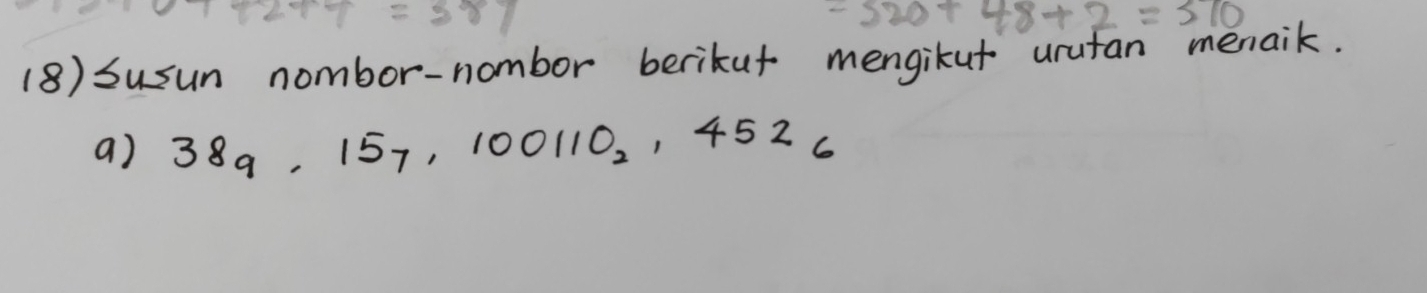 = 389
= 320 + 48 + 2 = 370
18) Susun nombor-nombor berikut mengikut urutan menaik.
a) 38₉, 15₇, 100110₂, 452₆